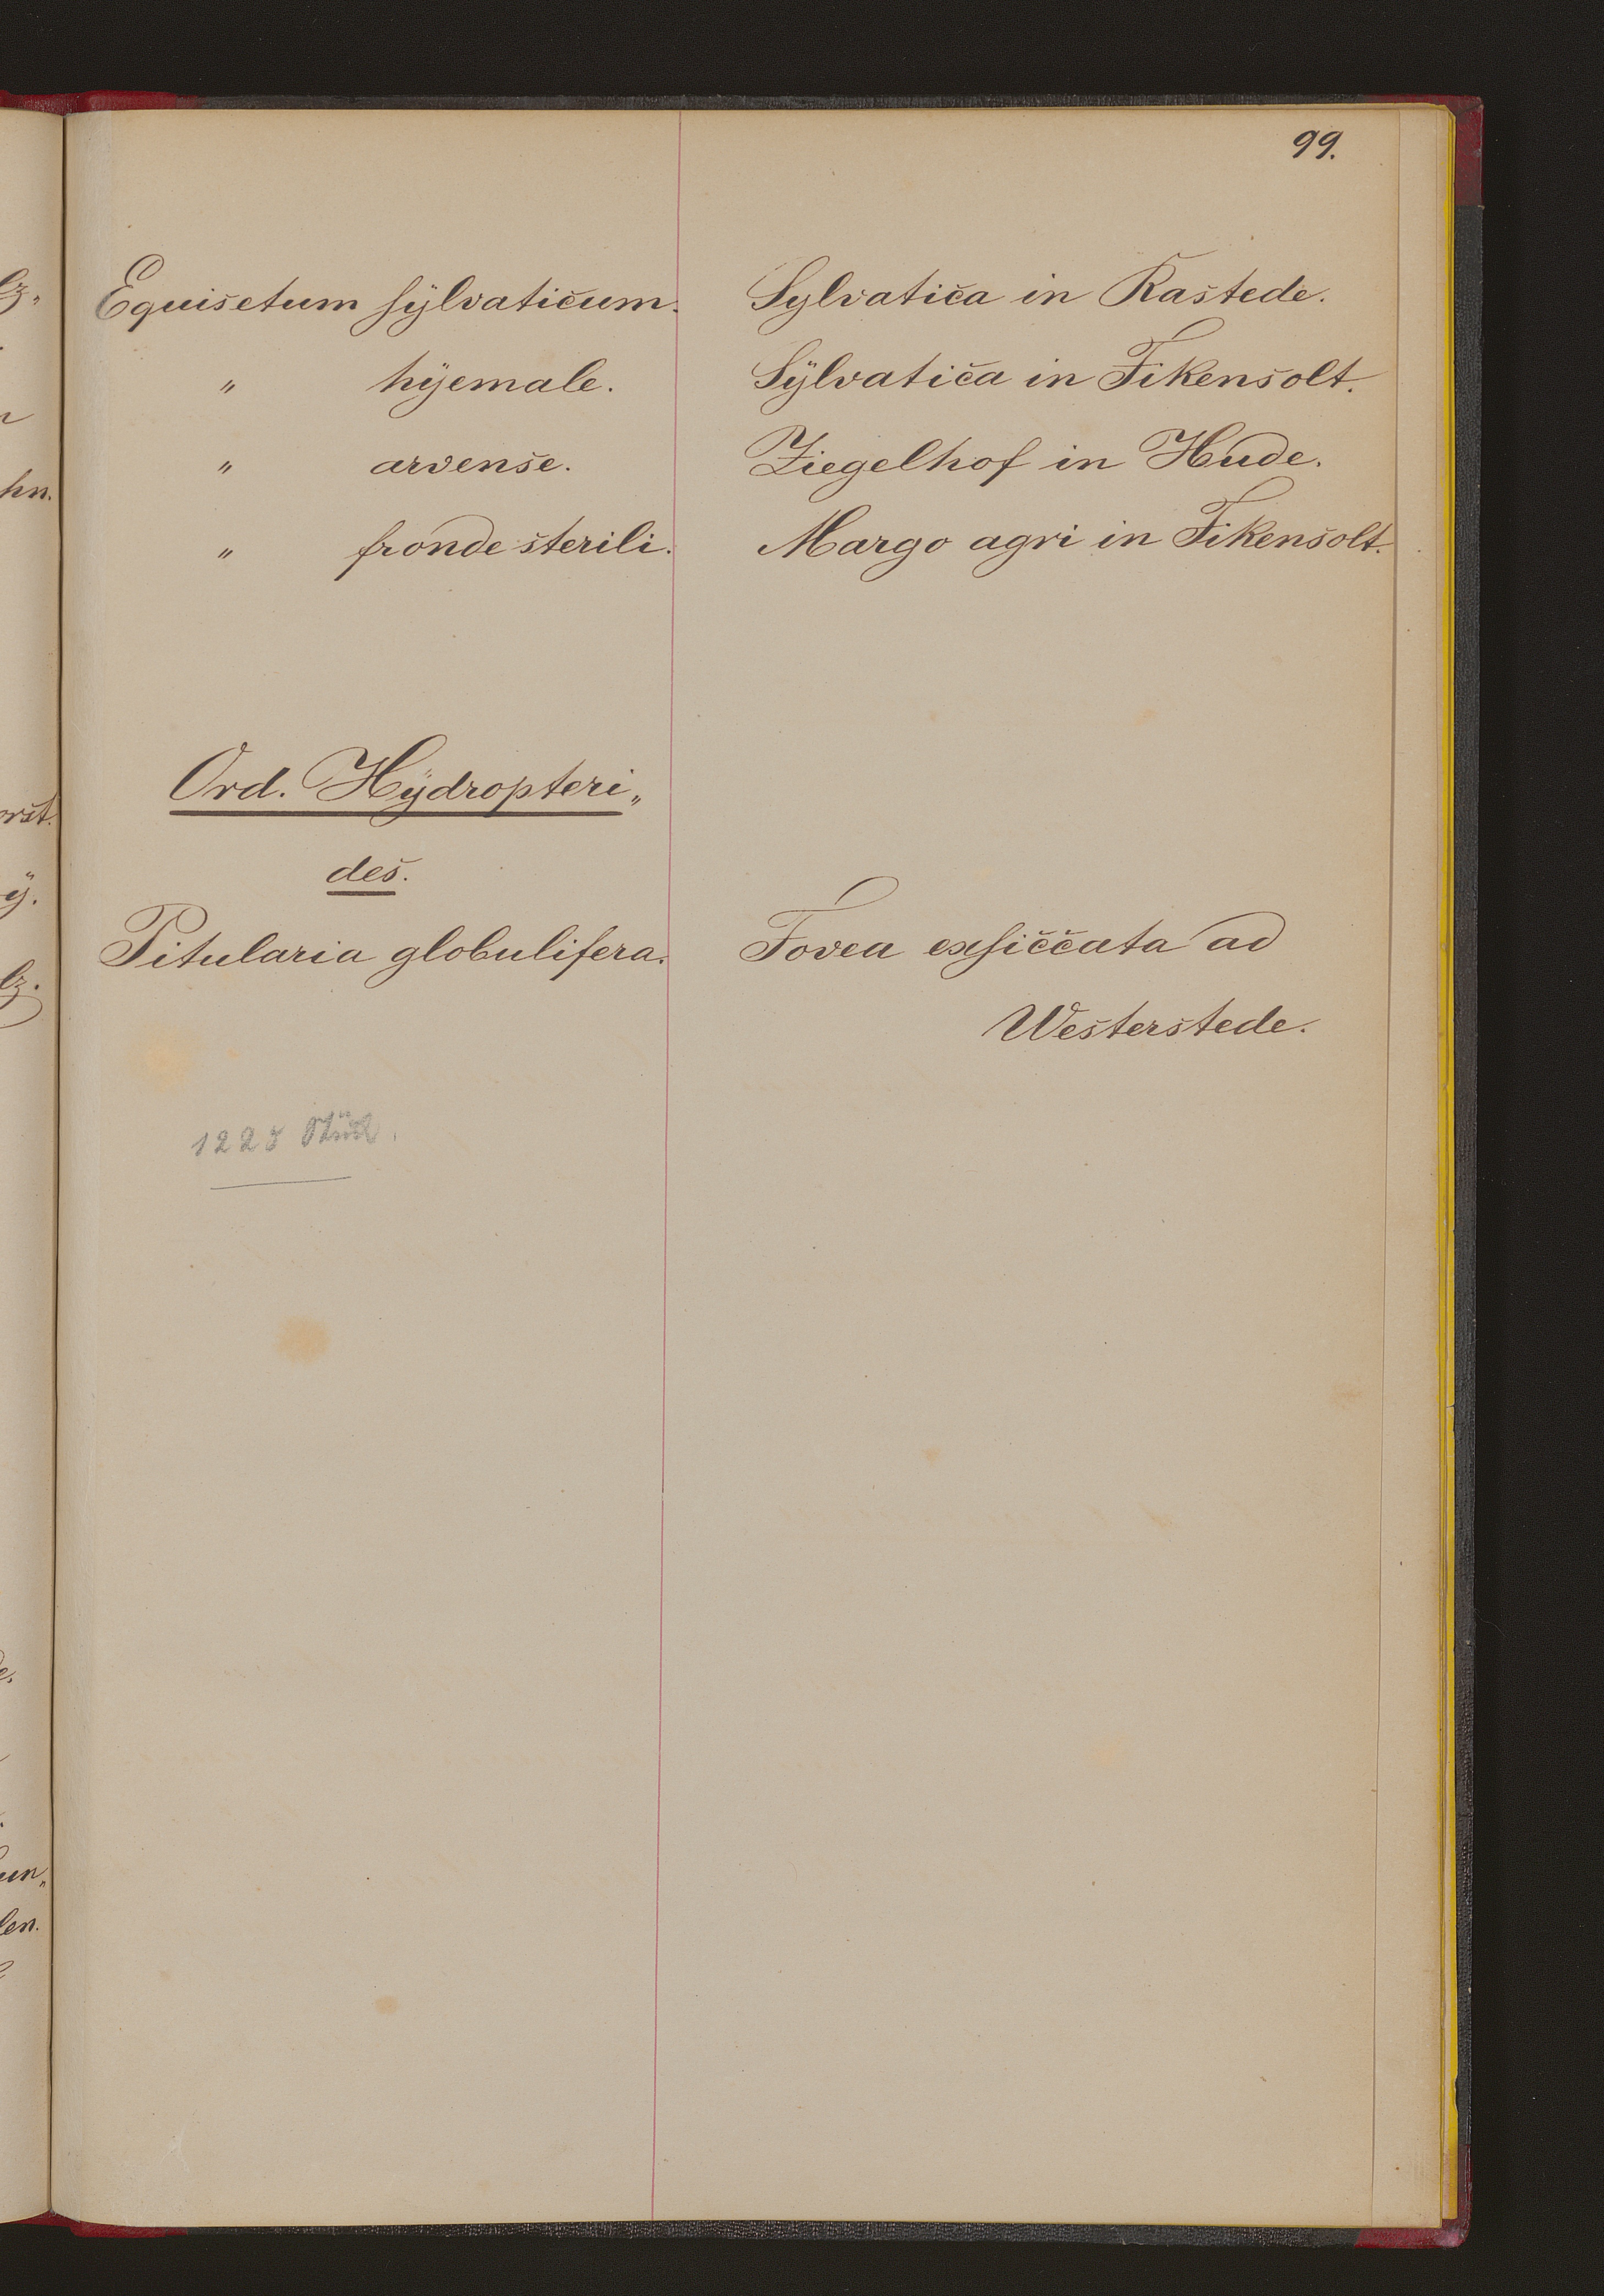 99.
Equisetum sÿlvaticum. Sylvatica in Rastede.
" hÿemale. Sÿlvatica in Fikensolt.
" arvense. Ziegelhof in Hude.
" fronde sterili. Margo agri in Fikensolt.
Ord. Hÿdropteri„
des.
Pitularia globulifera. Fovea exsiccata ad
Westerstede.
Stück.
hn.
ÿ.